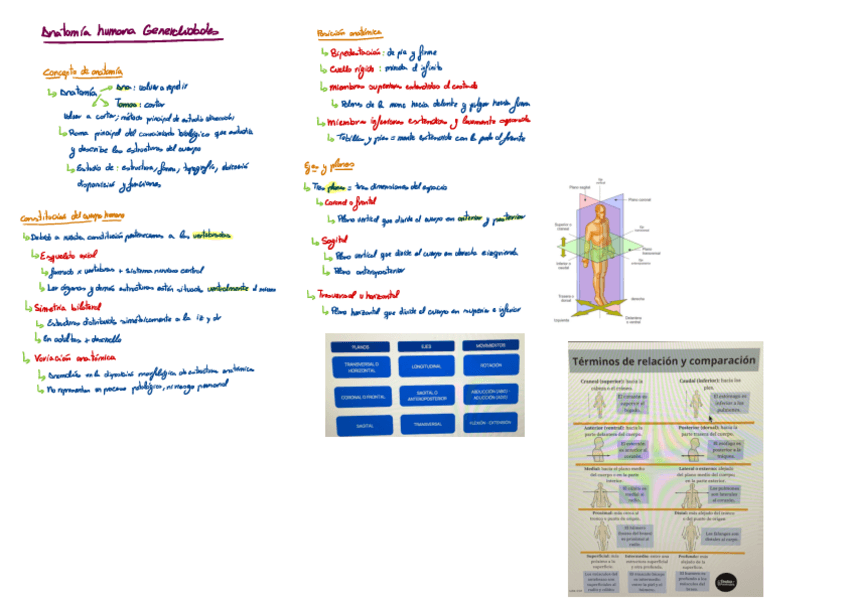 Anatomía humana Generalidades
Concepto de anatomía
Anatomía
Ana: volver a repetir
Tomos: cortar
Volver a cortar; método principal de estudio disección
Rama principal del conocimiento biológico que estudia
y describe las estructuras del cuerpo
Estudio de: estructura, forma, topografía, ubicación
disposición y funciones
Constitución del cuerpo humano
Debido a nuestra constitución pertenecemos a los vertebrados
Esqueleto axial
formado x vertebras + sistema nervioso central
Los órganos y demás estructuras están situados ventralmente al mismo
Simetría bilateral
Estructuras distribuidas simétricamente a la iz y dr
En adultos + desarrollo
Variación anatómica
anatómica
No representan un proceso patológico, ni riesgo personal
Posición anatómica
Bipedestación: de pie y firme
Cuello rígido: mirada al infinito
miembros superiores extendidos al costado
Palmas de la mano hacia delante y pulgar hacia fuera
Miembros inferiores extendidos y levemente separados
Tobillos y pies = extendido con la punta al frente
Ejes y planos
Tres planos = tres dimensiones del espacio
Coronal o frontal
Plano vertical que divide el cuerpo en anterior y posterior
Sagital
Plano vertical que divide el cuerpo en derecho e izquierdo
Plano anteroposterior
Transversal u horizontal
Plano horizontal que divide el cuerpo en superior e inferior
PLANOS EJES MOVIMIENTOS
TRANSVERSAL O HORIZONTAL LONGITUDINAL ROTACIÓN
CORONAL O FRONTAL SAGITAL O ANTEROPOSTERIOR ABDUCCIÓN (ABD) - ADUCCIÓN (ADD)
SAGITAL TRANSVERSAL FLEXIÓN - EXTENSIÓN
Plano sagital
Plano coronal
Superior o craneal
Plano transversal
Inferior o caudal
Trasero o dorsal
derecha
Izquierda
Delantera o ventral
Términos de relación y comparación
Craneal (superior): hacia la cabeza o el cráneo.
El corazón es superior al hígado.
Caudal (inferior): hacia los pies.
El estómago es inferior a los pulmones.
Anterior (ventral): hacia la parte delantera del cuerpo.
El esternón es anterior al corazón.
Posterior (dorsal): hacia la parte trasera del cuerpo.
El esófago es posterior a la tráquea.
Medial: hacia el plano medio del cuerpo o en la parte interior.
El cúbito es medial al radio.
Lateral o externo: alejado del plano medio del cuerpo, en la parte exterior.
Los pulmones son laterales al corazón.
Proximal: más cerca al tronco o punto de origen.
El húmero es proximal al radio.
Distal: más alejado del tronco o del punto de origen
Las falanges son distales al carpo.
Superficial: más próximo a la superficie.
Intermedio: entre una estructura superficial y otra profunda.
Profundo: más alejado de la superficie.